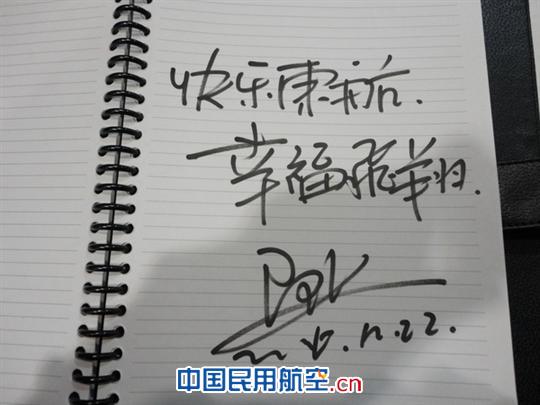 快乐东航.
幸福飞翔.
中国民用航空.cn